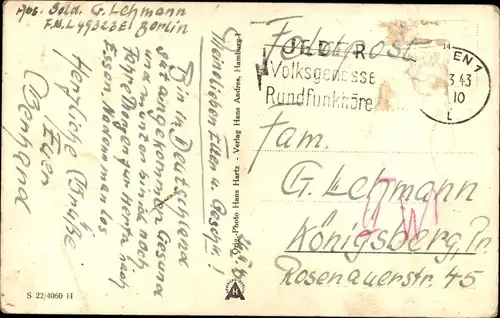 Abs. Sold. G. Lehmann
F.N. L 49323 E1 Berlin
Feldpost
JEDER
Volksgenosse
Rundfunkhöre
EN 7
3.43
10
Meine lieben Eltern u. Geschw.!
Bin in Deutschland
gut angekommen. Gesund
und munter sind noch.
Fahre Morgen zur nach
Essen,
Herzliche Grüße
Euer
Fam.
G. Lehmann
Königsberg, Pr.
Rosenauerstr. 45
Orig.-Photo Hans Hartz - Verlag Hans Andres, Hamburg-1
H
S 22/4060 H